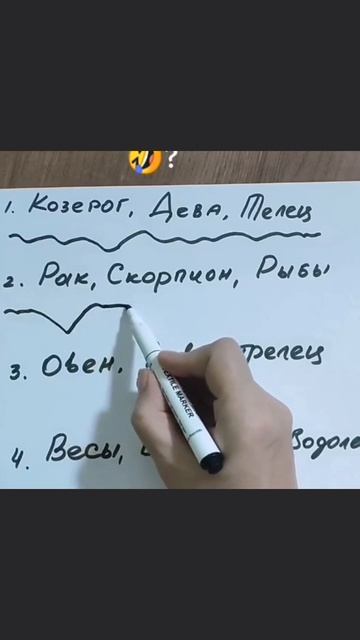 ?
1. Козерог, Дева, Телец
2. Рак, Скорпион, Рыбы
3. Овен,
4. Весы,
TEXTILE MARKER